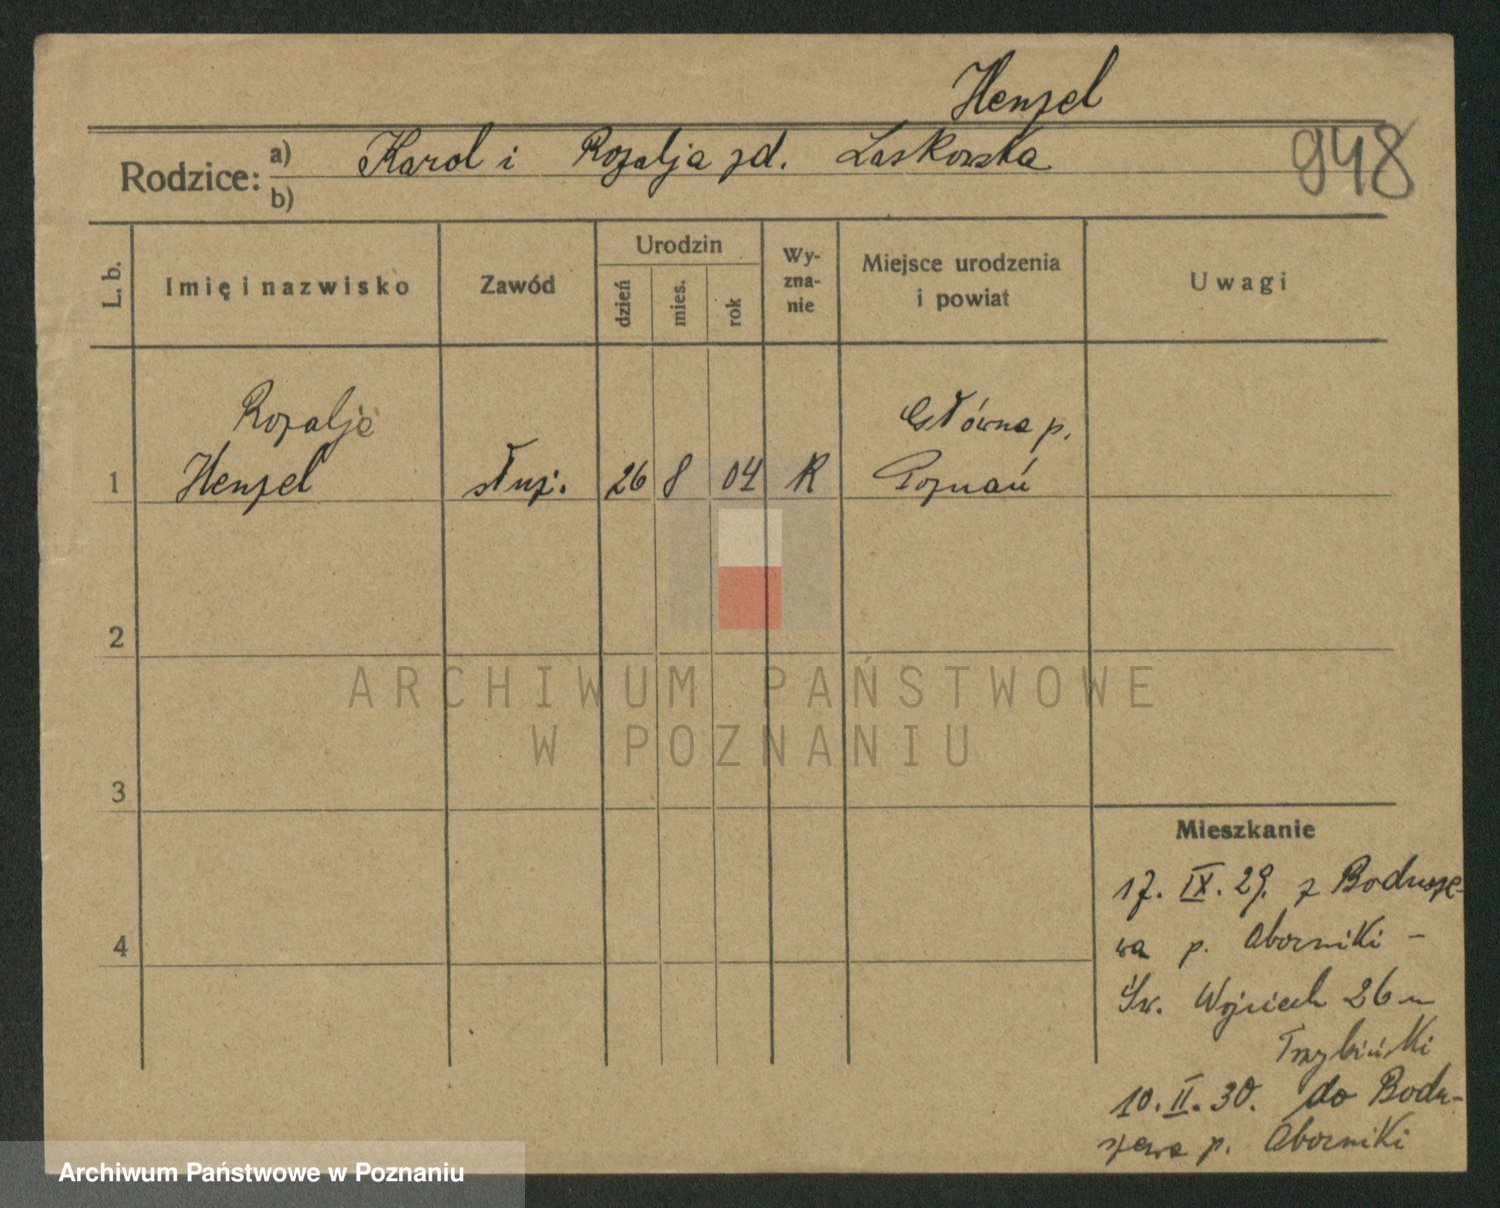 Henzel
948
Rodzice: a) Karol i Rozalja zd. Laskowska
b)
L. b.
Imię i nazwisko
Zawód
Urodzin
dzień
mies.
rok
Wy-
zna-
nie
Miejsce urodzenia
i powiat
Uwagi
1
Rozalja
Henzel
służ.
26 8 04
R
Główna p.
Poznań
2
3
4
Mieszkanie
17. IX. 29. z Bodusze-
wa p. Oborniki –
Św. Wojciech 26 u
Trzybiński
10. II. 30. do Bodu-
szewa p. Oborniki
ARCHIWUM PAŃSTWOWE
W POZNANIU
Archiwum Państwowe w Poznaniu